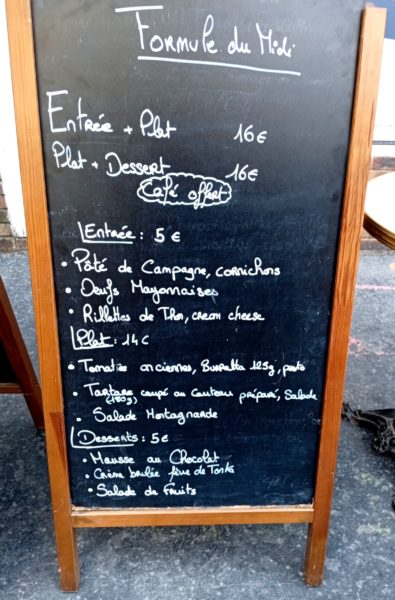 Formule du Midi
Entrée + Plat 16€
Plat + Dessert 16€
Café offert
Entrée : 5€
• Pâté de Campagne, cornichons
• Oeufs Mayonnaises
• Rillettes de Thon, cream cheese
Plat : 14€
• Tomates anciennes, Burratta 125g, pesto
• Tartare coupé au Couteau préparé, Salade
(180g)
• Salade Montagnarde
Desserts : 5€
• Mousse au Chocolat
• Crème brulée fève de Tonka
• Salade de fruits